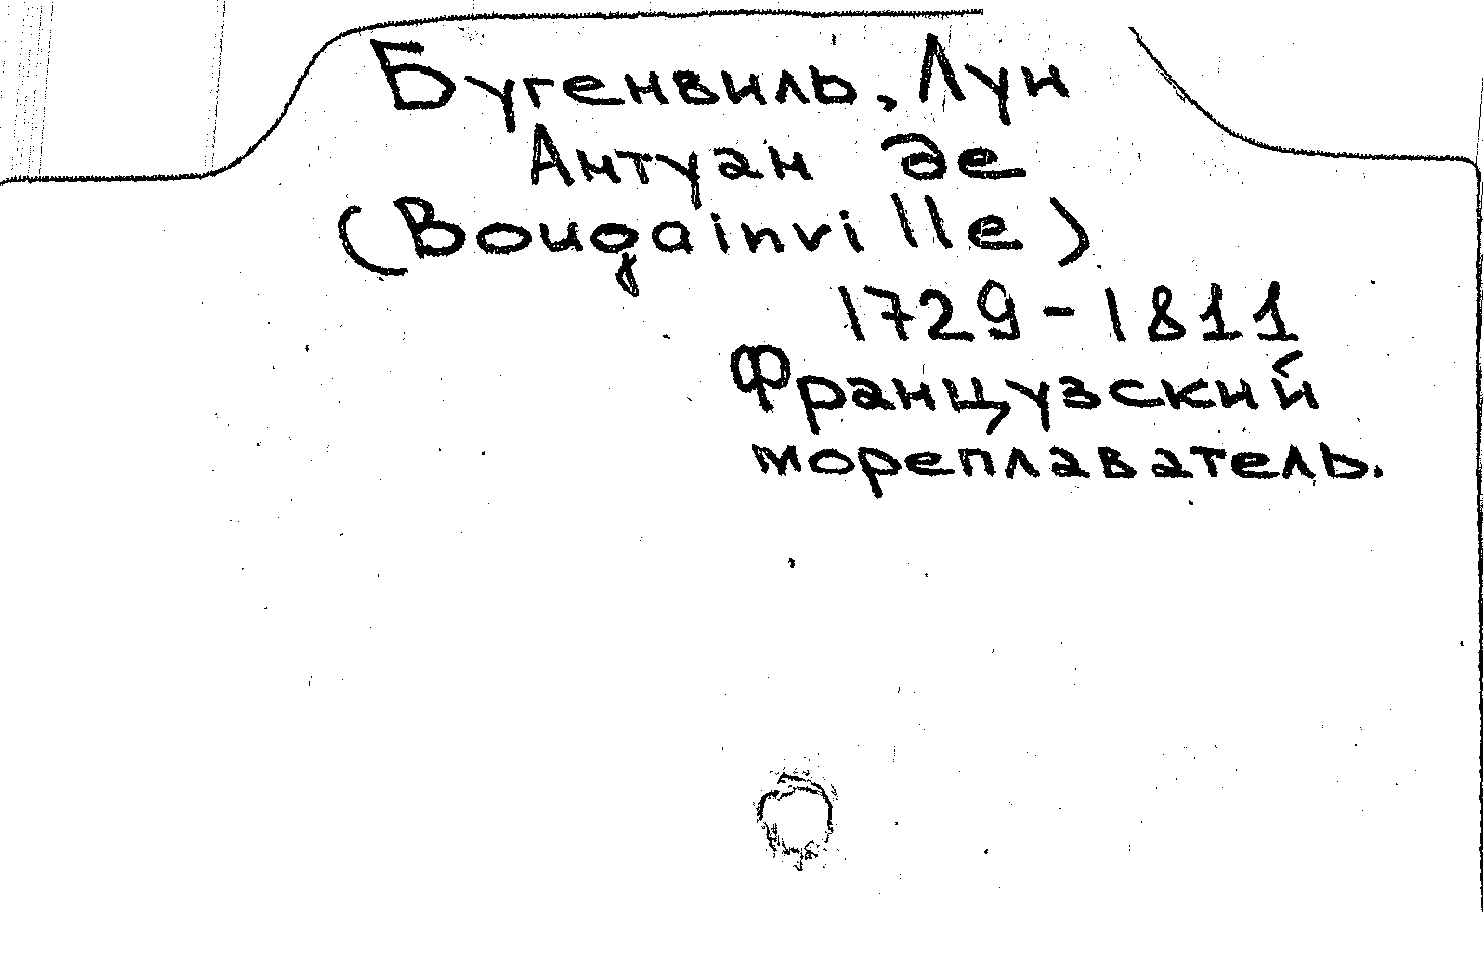 Бугенвиль, Луи
Антуан де
(Bougainville)
1729-1811
Французский
мореплаватель.